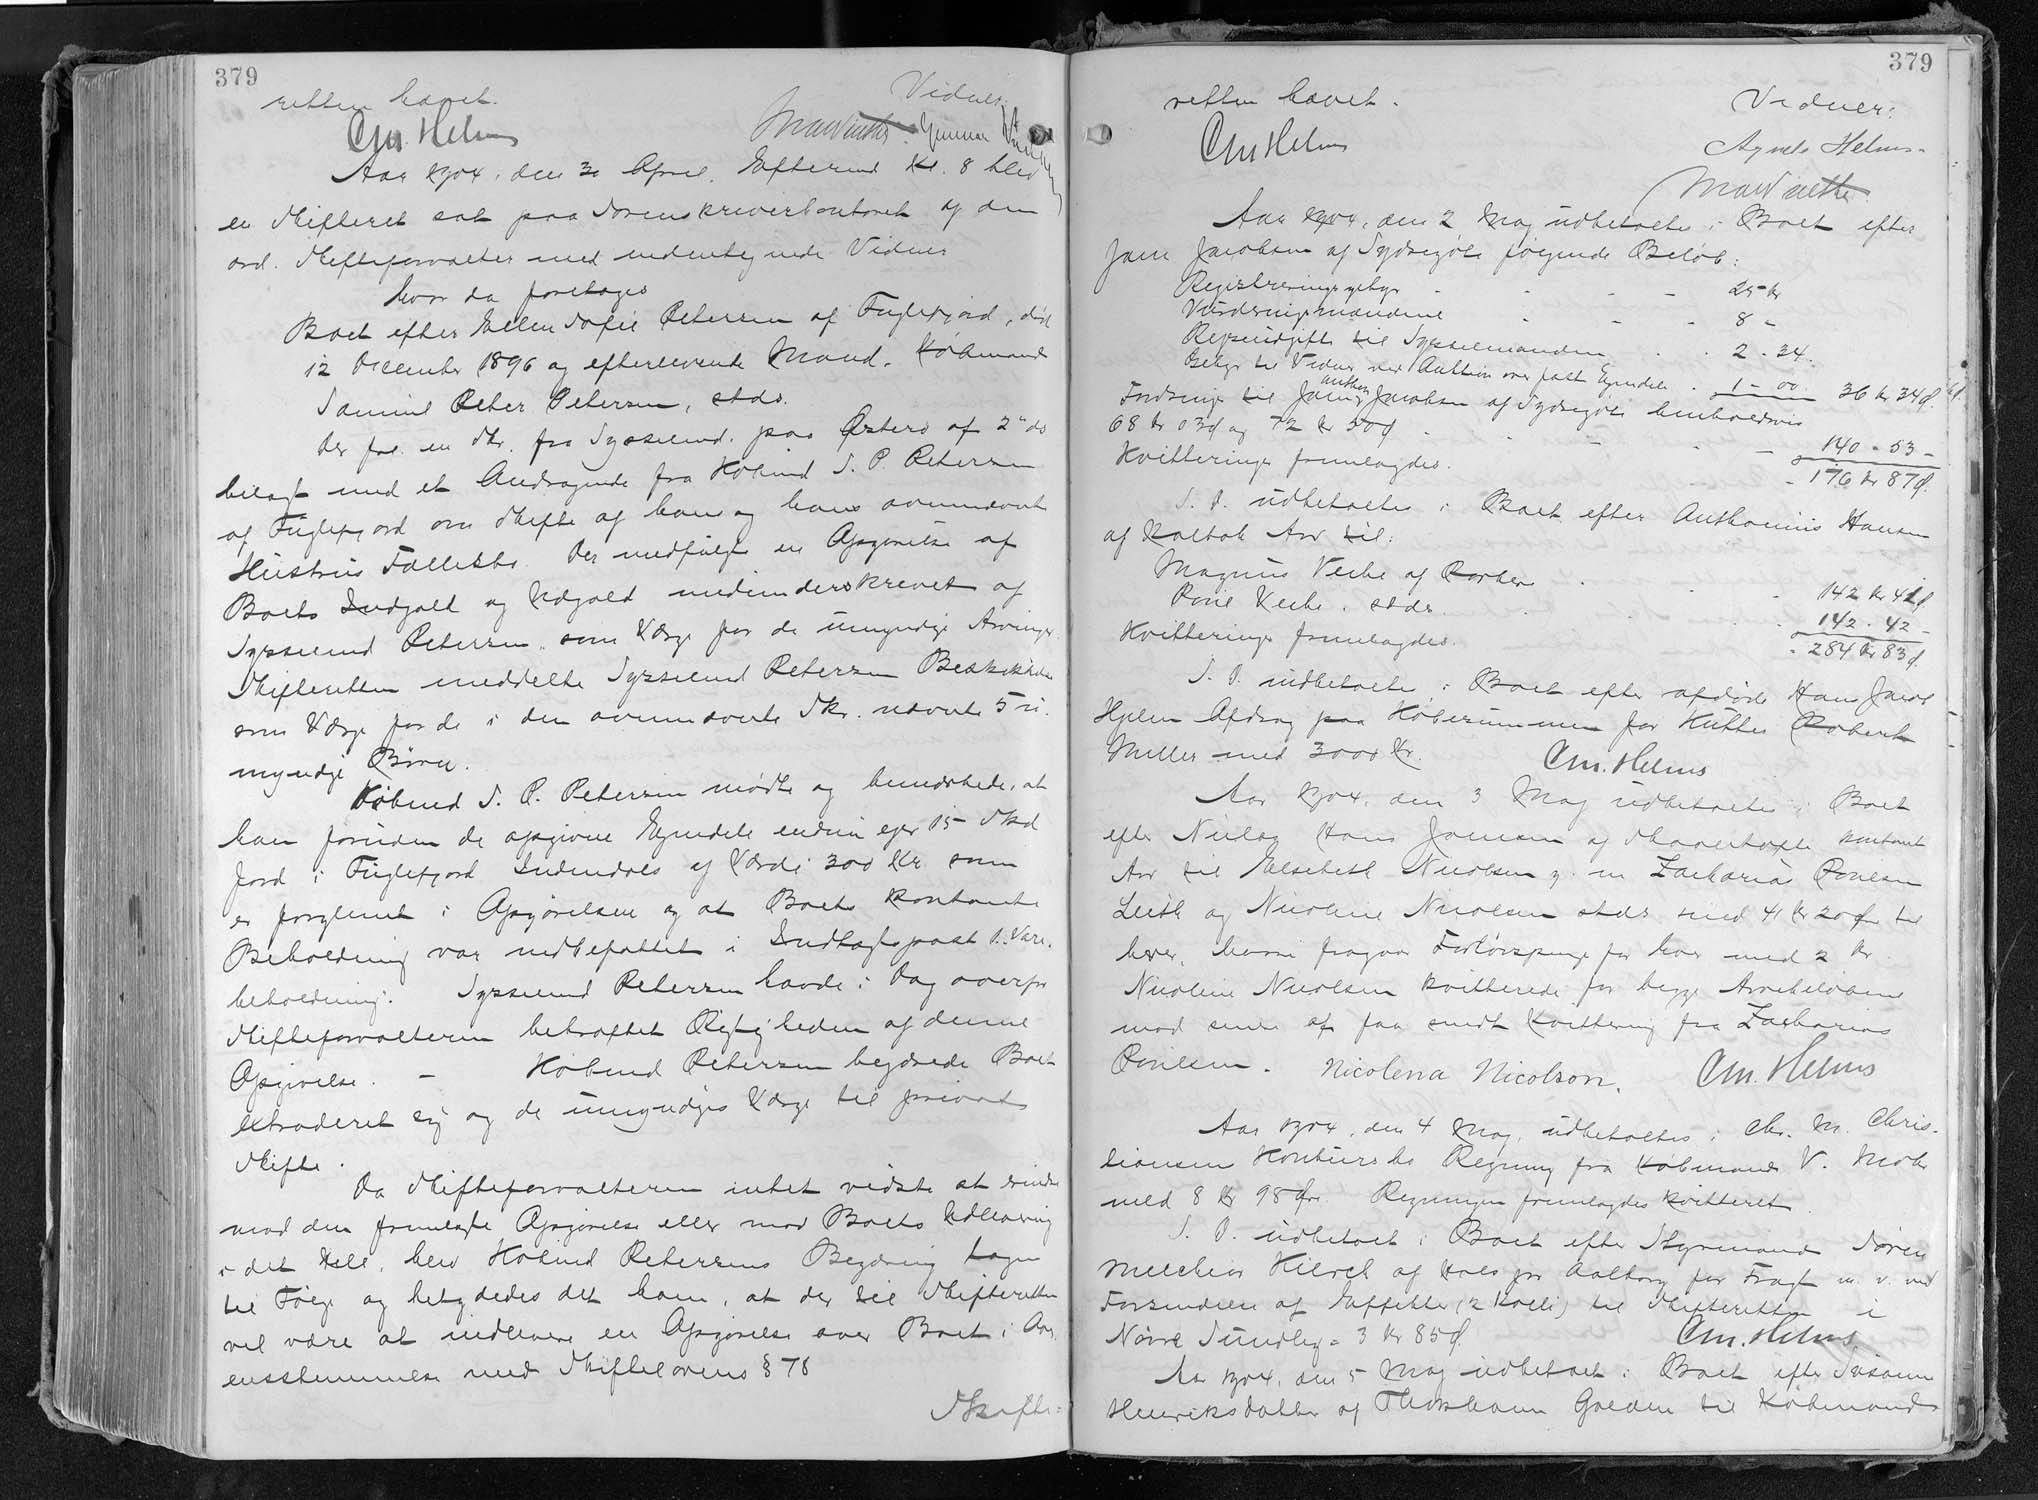 379
Vidner:
retten hævet.
Chr. Helms MWinther Gunnar
Aar 1904, den 30 April, Eftermd Kl. 8 blev
en Skifteret sat paa Sorenskriverkontoret af den
ord. Skifteforvalter med undertegnede Vidner
hvor da foretoges
Boet efter Ellen Sofie Petersen af Fuglefjord, død
12 December 1896 og efterlevende Mand, Købmand
Samuel Peter Petersen, stds.
Der frl. en Skr. fra Sysselmd. paa Østerø af 2 ds
bilagt med et Andragende fra Købmd S. P. Petersen
af Fuglefjord om Skifte af hans og hans ovennævnte
Hustrus Fællesbo. Der medfulgte en Opgørelse af
Boets Indgæld og Udgæld medunderskrevet af
Sysselmd Petersen som Værge for de umyndige Arvinger.
Skifteretten meddelte Sysselmd Petersen Beskikkelse
som Værge for de i den ovennævnte Skr. nævnte 5 u-
myndige Børn.
Købmd S. P. Petersen mødte og bemærkede, at
han foruden de opgivne Ejendele endnu ejer 15 Skd
Jord i Fuglefjord Indendals af Værdi 300 Kr. som
er forglemt i Opgørelsen og at Boets kontante
Beholdning var indbefattet i Indtægtspost 1. Vare-
beholdning. Sysselmd Petersen havde i Dag overfor
Skifteforvalteren bekræftet Rigtigheden af denne
Opgivelse. - Købmd Petersen begærede Boet
extraderet sig og de umyndiges Værge til privat
Skifte.
Da Skifteforvalteren intet vidste at erindre
mod den fremlagte Opgørelse eller mod Boets Udlevering
i det Hele, blev Købmd Petersens Begæring tagen
til Følge og betydedes det ham, at der til Skifteretten
vil være at indlevere en Opgørelse over Boet i Over-
ensstemmelse med Skiftelovens § 78
Skifte-
379
retten hævet. Vidner:
Chr Helms Agnete Helms
MWinther
Aar 1904, den 2 Maj udbetaltes i Boet efter
Jane Jacobsen af Sydregøte følgende Beløb:
Registreringsgebyr - - - - 25 - Kr
Vurderingsmændene - - - 8 -
Rejseudgifter til Sysselmanden - - 2 - 34
Gebyr til Vidner ved Auktion over fast Ejendele - 1 - 00 36 Kr 34 Ø.
Fordringer til Janus Anthon Jacobsen af Sydregøte henholdsvis
68 Kr 03 Ø og 72 Kr 50 Ø - - - 140 - 53 -
Kvitteringer fremlagdes. - 176 Kr 87 Ø.
S. D. udbetaltes i Boet efter Anthonius Hansen
af Kaltbak Arv til:
Magnus Veihe af Porkere - - - 142 Kr 41 Ø
Poul Veihe, stds. - - - 142 - 42 -
Kvitteringer fremlagdes. - 284 Kr 83 Ø.
S. D. udbetaltes i Boet efter afdøde Hans Jacob
Hjelm Afdrag paa Købesummen for Kutter Robert
Miller med 3000 Kr. Chr. Helms
Aar 1904, den 3 Maj udbetaltes i Boet
efter Niclas Hans Joensen af Skaaletofte kontant
Arv til Elsebeth Nicolsen g. m. Zacharias Poulsen
Leith og Nicoline Nicolsen stds med 41 Kr 20 Øre til
hver, hvori fragaar Forlovspenge for hver med 2 Kr.
Nicoline Nicolsen kvitterede for begge Arvebeløbene
mod senere at faa sendt Kvittering fra Zacharias
Poulsen. Nicolena Nicolson. Chr. Helms
Aar 1904, den 4 Maj, udbetaltes i Chr. M. Chris-
tiansens Konkursbo Regning fra Købmand V. Mohr
med 8 Kr 98 Øre. Regningen fremlagdes kvitteret.
S. D. udbetalt i Boet efter Styrmand Søren
Melchior Hilock af Hals pr Aalborg for Fragt m. v. ved
Forsendelse af Effekter (2 Kolli) til Skifteretten i
Nørre Sundby = 3 Kr 85 Ø. Chr. Helms
Aar 1904, den 5 Maj udbetalt i Boet efter Susanne
Henriksdatter af Thorshavn Gælden til Købmand